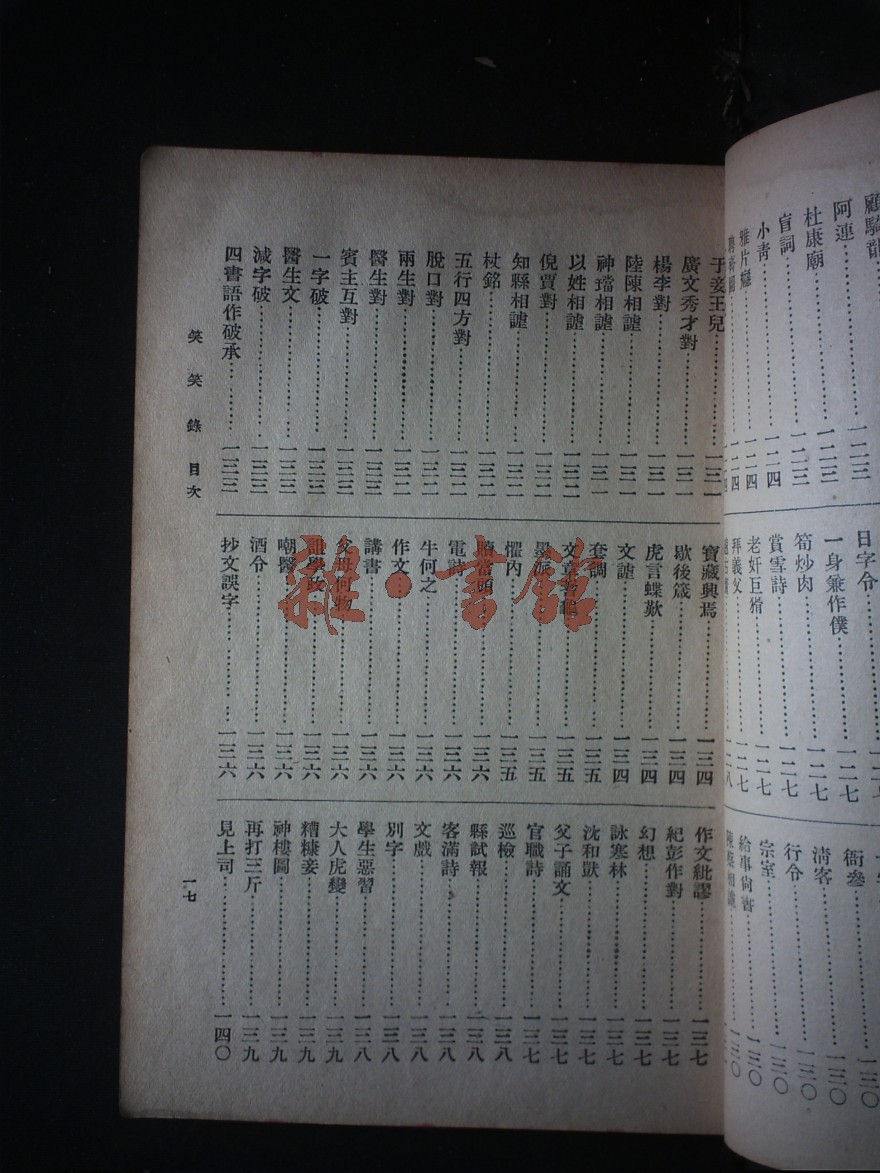 顧騎
阿連……一二三
杜康廟……一二三
盲詞……一二三
小青……一二四
雅片癮……一二四
一二四
日字令
一身兼作僕……一二七
筍炒肉……一二七
賞雪詩……一二七
老奸巨猾……一二七
拜義父……一二七
衙參……一三〇
清客……一三〇
行令……一三〇
宗室……一三〇
給事尚書……一三〇
于妾王兒……一三一
廣文秀才對……一三一
楊李對……一三一
陸陳相謔……一三一
神璫相謔……一三一
以姓相謔……一三二
倪賈對……一三二
知縣相謔……一三二
杖銘……一三二
五行四方對……一三二
脫口對……一三二
兩生對……一三二
醫生對……一三三
賓主互對……一三三
一字破……一三三
醫生文……一三三
減字破……一三三
四書語作破承……一三三
寶藏興焉……一三四
歇後箴……一三四
虎言蝶歎……一三四
文謔……一三四
套調……一三五
文章……一三五
墨派……一三五
懼內……一三五
當頭……一三六
電詩……一三六
牛何之……一三六
作文……一三六
講書……一三六
父母何物……一三六
學政……一三六
嘲醫……一三六
酒令……一三六
抄文誤字……一三六
作文紕謬……一三七
紀彭作對……一三七
幻想……一三七
詠寒林……一三七
沈和獃……一三七
父子誦文……一三七
官職詩……一三七
巡檢……一三八
縣試報……一三八
客滿詩……一三八
文戲……一三八
別字……一三八
學生惡習……一三八
大人虎變……一三九
糟糠妾……一三九
神樓圖……一三九
再打三斤……一三九
見上司……一四〇
笑笑錄 目次
一七
雜·書館